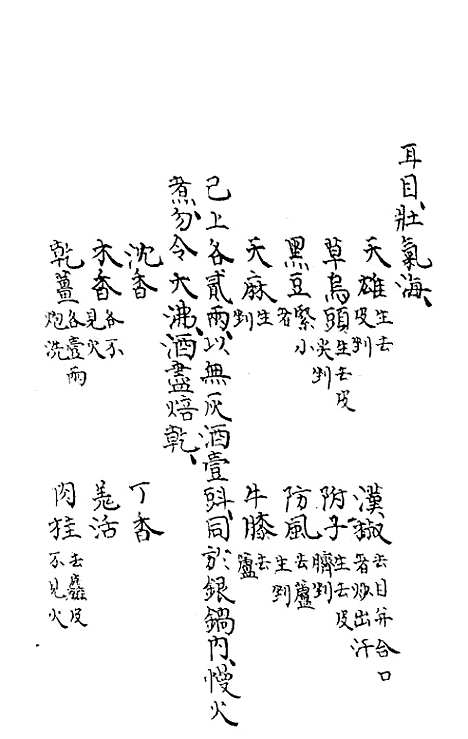 耳目、壯氣海、
天雄生去皮剉 漢椒去目并合口者炒出汗
草烏頭生去皮尖剉 附子生去皮臍剉
黑豆緊小者 防風去蘆生剉
天麻生剉 牛膝去蘆
已上各貳兩、以無灰酒壹㪷、同於銀鍋內、慢火
煮、勿令大沸、酒盡焙乾、
沈香 丁香
木香各不見火 羌活
乾薑各壹兩炮洗 肉桂去麤皮不見火